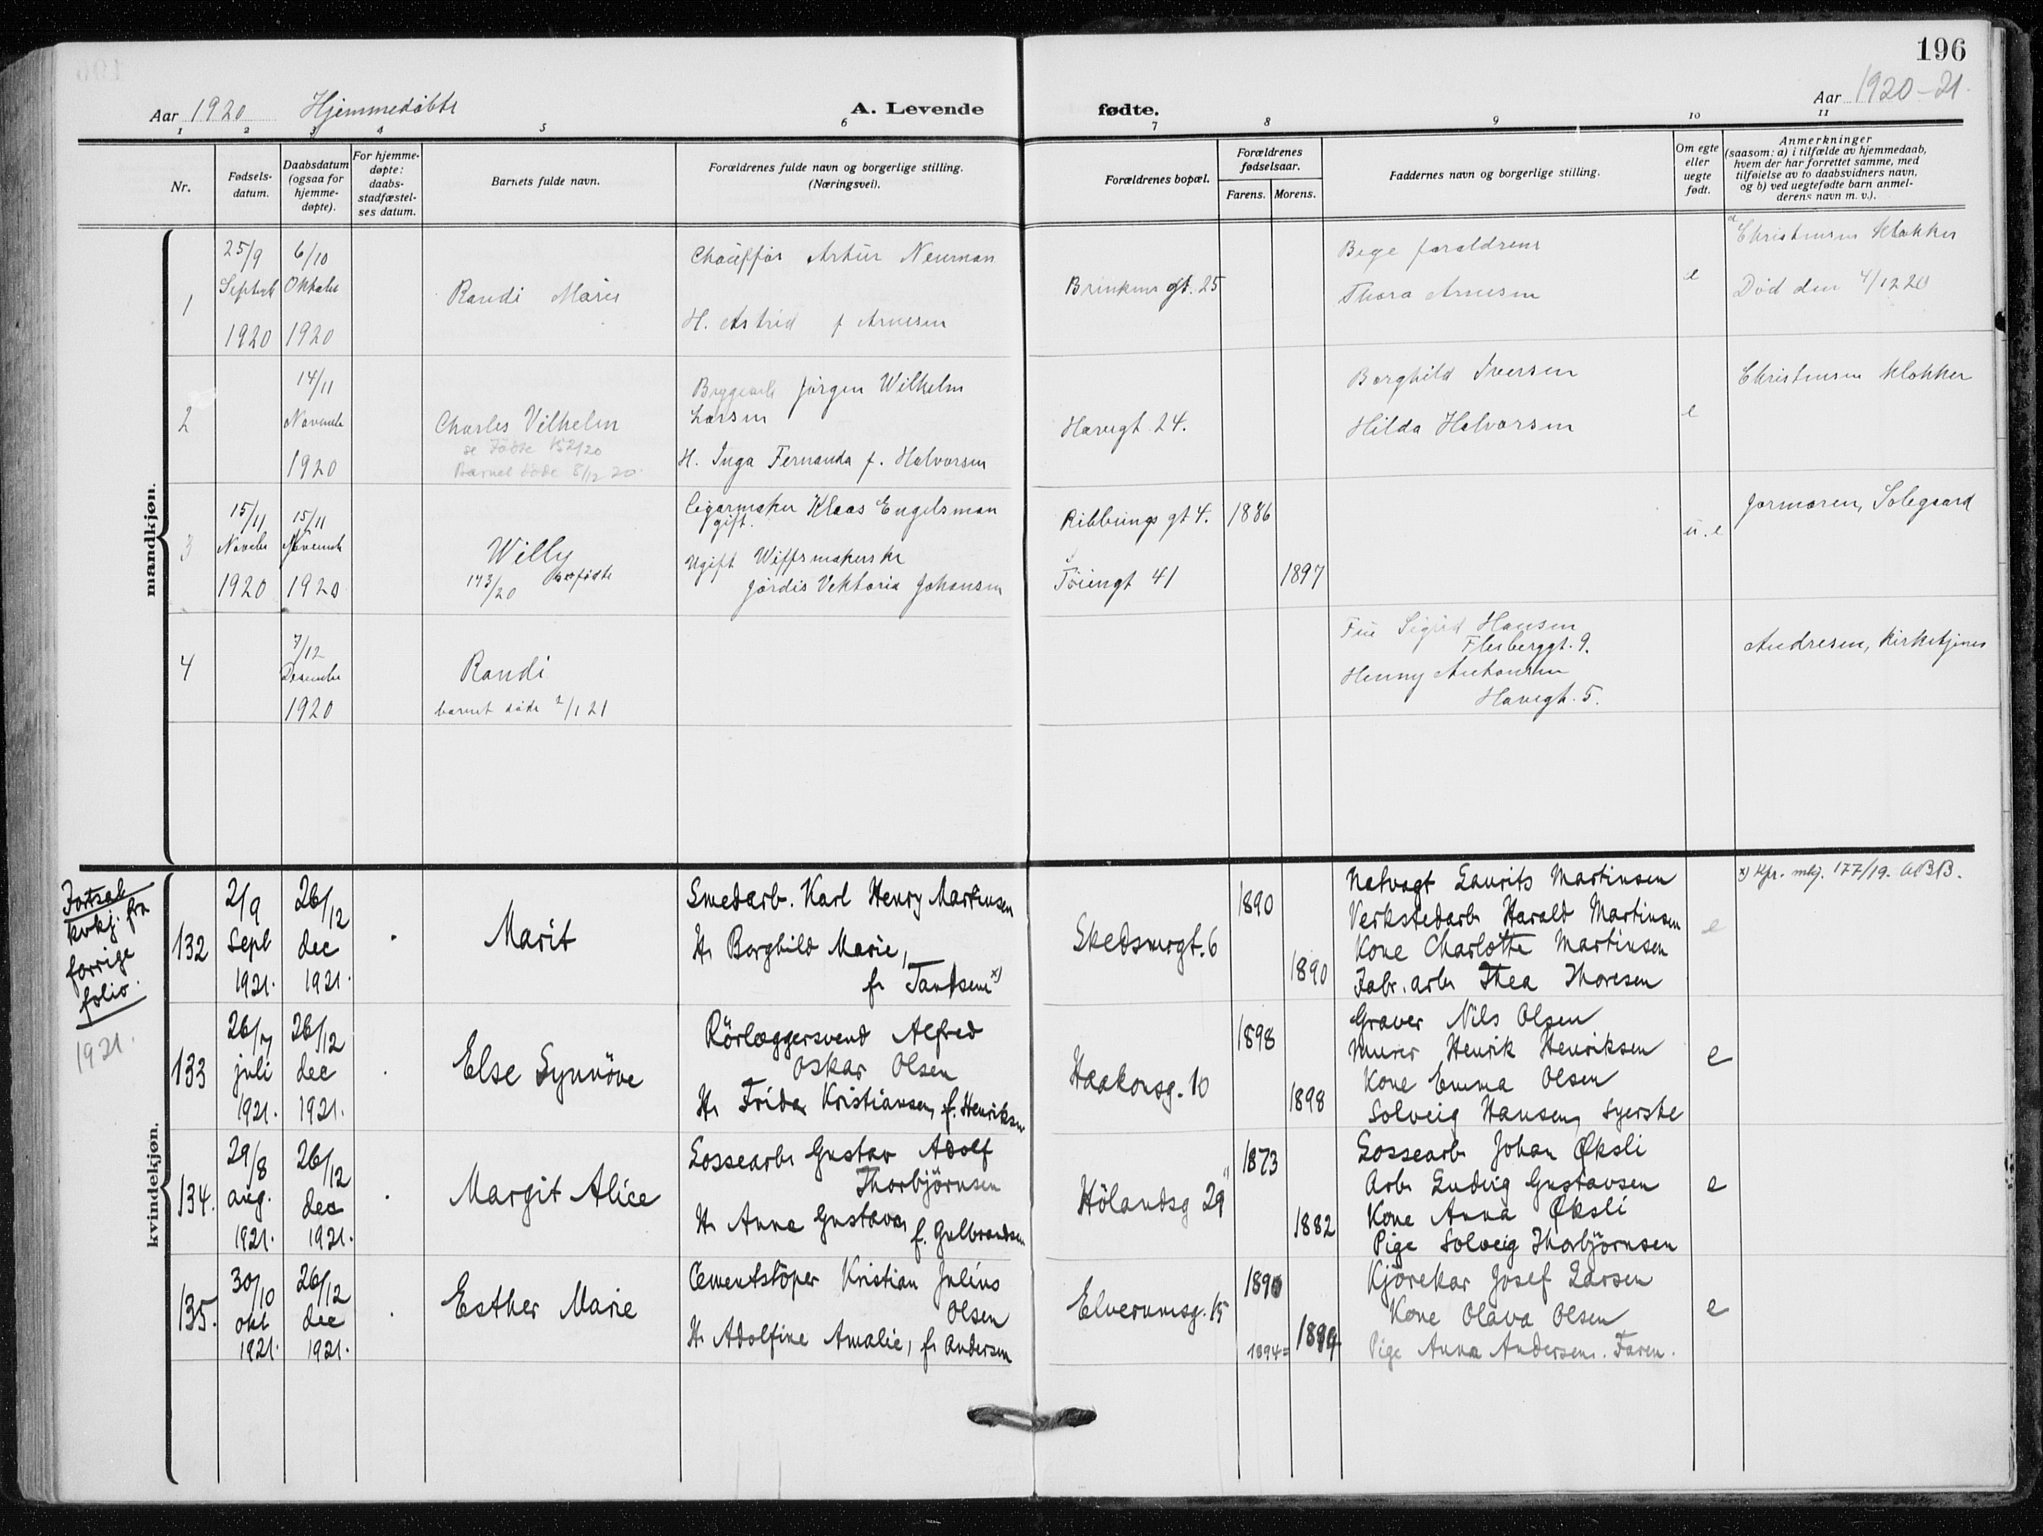 196
Aar 1920 Hjemmedøbte A. Levende fødte. Aar 1920-21.
1 2 3 4 5 6 7 8 9 10 11
Nr.
Fødsels-
datum.
Daabsdatum
(ogsaa for
hjemme-
døpte).
For hjemme-
døpte:
daabs-
stadfæstel-
ses datum.
Barnets fulde navn.
Forældrenes fulde navn og borgerlige stilling.
(Næringsvei).
Forældrenes bopæl.
Forældrenes
fødselsaar.
Farens. Morens.
Faddernes navn og borgerlige stilling.
Om egte
eller
uegte
født.
Anmerkninger
(saasom: a) i tilfælde av hjemmedaab,
hvem der har forrettet samme, med
tilføielse av to daabsvidners navn,
og b) ved uegtefødte barn anmel-
derens navn m. v.).
mandkjøn.
1
25/9
Septbr
1920
6/10
Oktober
1920
Randi Marie
Chauffør Artur Neuman
H. Astrid f Arnesen
Brinkens gt. 25
Bege forældrene
Thora Arnesen
e
Christensen klokker
Død den 4/12 20
2
14/11
Novembr
1920
Charles Vilhelm
se Fødte 152/20
Barnet døde 8/12 20.
Bryggearb Jørgen Wilhelm
Larsen
H. Inga Fernanda f. Halvorsen
Havegt 24.
Borghild Iversen
Hilda Halvorsen
e
Christensen klokker
3
15/11
Novbr
1920
15/11
Novembr
1920
Willy
173/20 fødte
Cigarmaker Klaas Engelsman
gift.
Ugift
Jørdis Vektoria Johansen
Ribbungs gt 4.
Töiengt 41
1886
1897
u. e
Jormoren, Solegaard
4
7/12
Desember
1920
Randi
barnet døde 2/1 21
Fru Sigrid Hansen
Flesberggt. 9.
Henny Antonsen
Havegt. 5.
Andresen, kirketjener
kvindekjøn.
Fortsat
kvkj. fra
forrige
folio.
1921.
132
2/9
Sept
1921.
26/12
dec
1921.
Marit
Smedarb. Karl Henry Martinsen
H. Borghild Marie,
f. Tandsem x)
Skedsmogt. 6
1890
1890
Natvagt Laurits Martinsen
Verkstedarb. Harald Martinsen
Kone Charlotte Martinsen
Fabr. arb. Thea Thoresen
e
x) Kfr. mkj. 177/19. ABB.
133
26/7
juli
1921.
26/12
dec
1921.
Else Synnöve
Rörlæggersvend Alfred
Oskar Olsen
H. Frida Kristiansen, f. Henriksen
Haakonsg. 10
1898
1898
Graver Nils Olsen
Murer Henrik Henriksen
Kone Emma Olsen
Solveig Hansen, Syerske
e
134.
29/8
aug.
1921.
26/12
dec
1921.
Margit Alice
Lossearb. Gustav Adolf
Thorbjörnsen
H. Anna Gustava f. Gulbrandsen
Hölandsg 29
1873
1882
Lossearb. Johan Øksli
Arb. Ludvig Gustavsen
Kone Anna Øksli
Pige Solveig Thorbjörnsen
e
135.
30/10
okt
1921.
26/12
dec
1921.
Esther Marie
Cementstöper Kristian Julius
Olsen
H. Adolfine Amalie, f. Andersen
Elverumsg. 15
1890
1894= 1894
Kjørekar Josef Larsen
Kone Olava Olsen
Pige Anna Andersen. Faren.
e